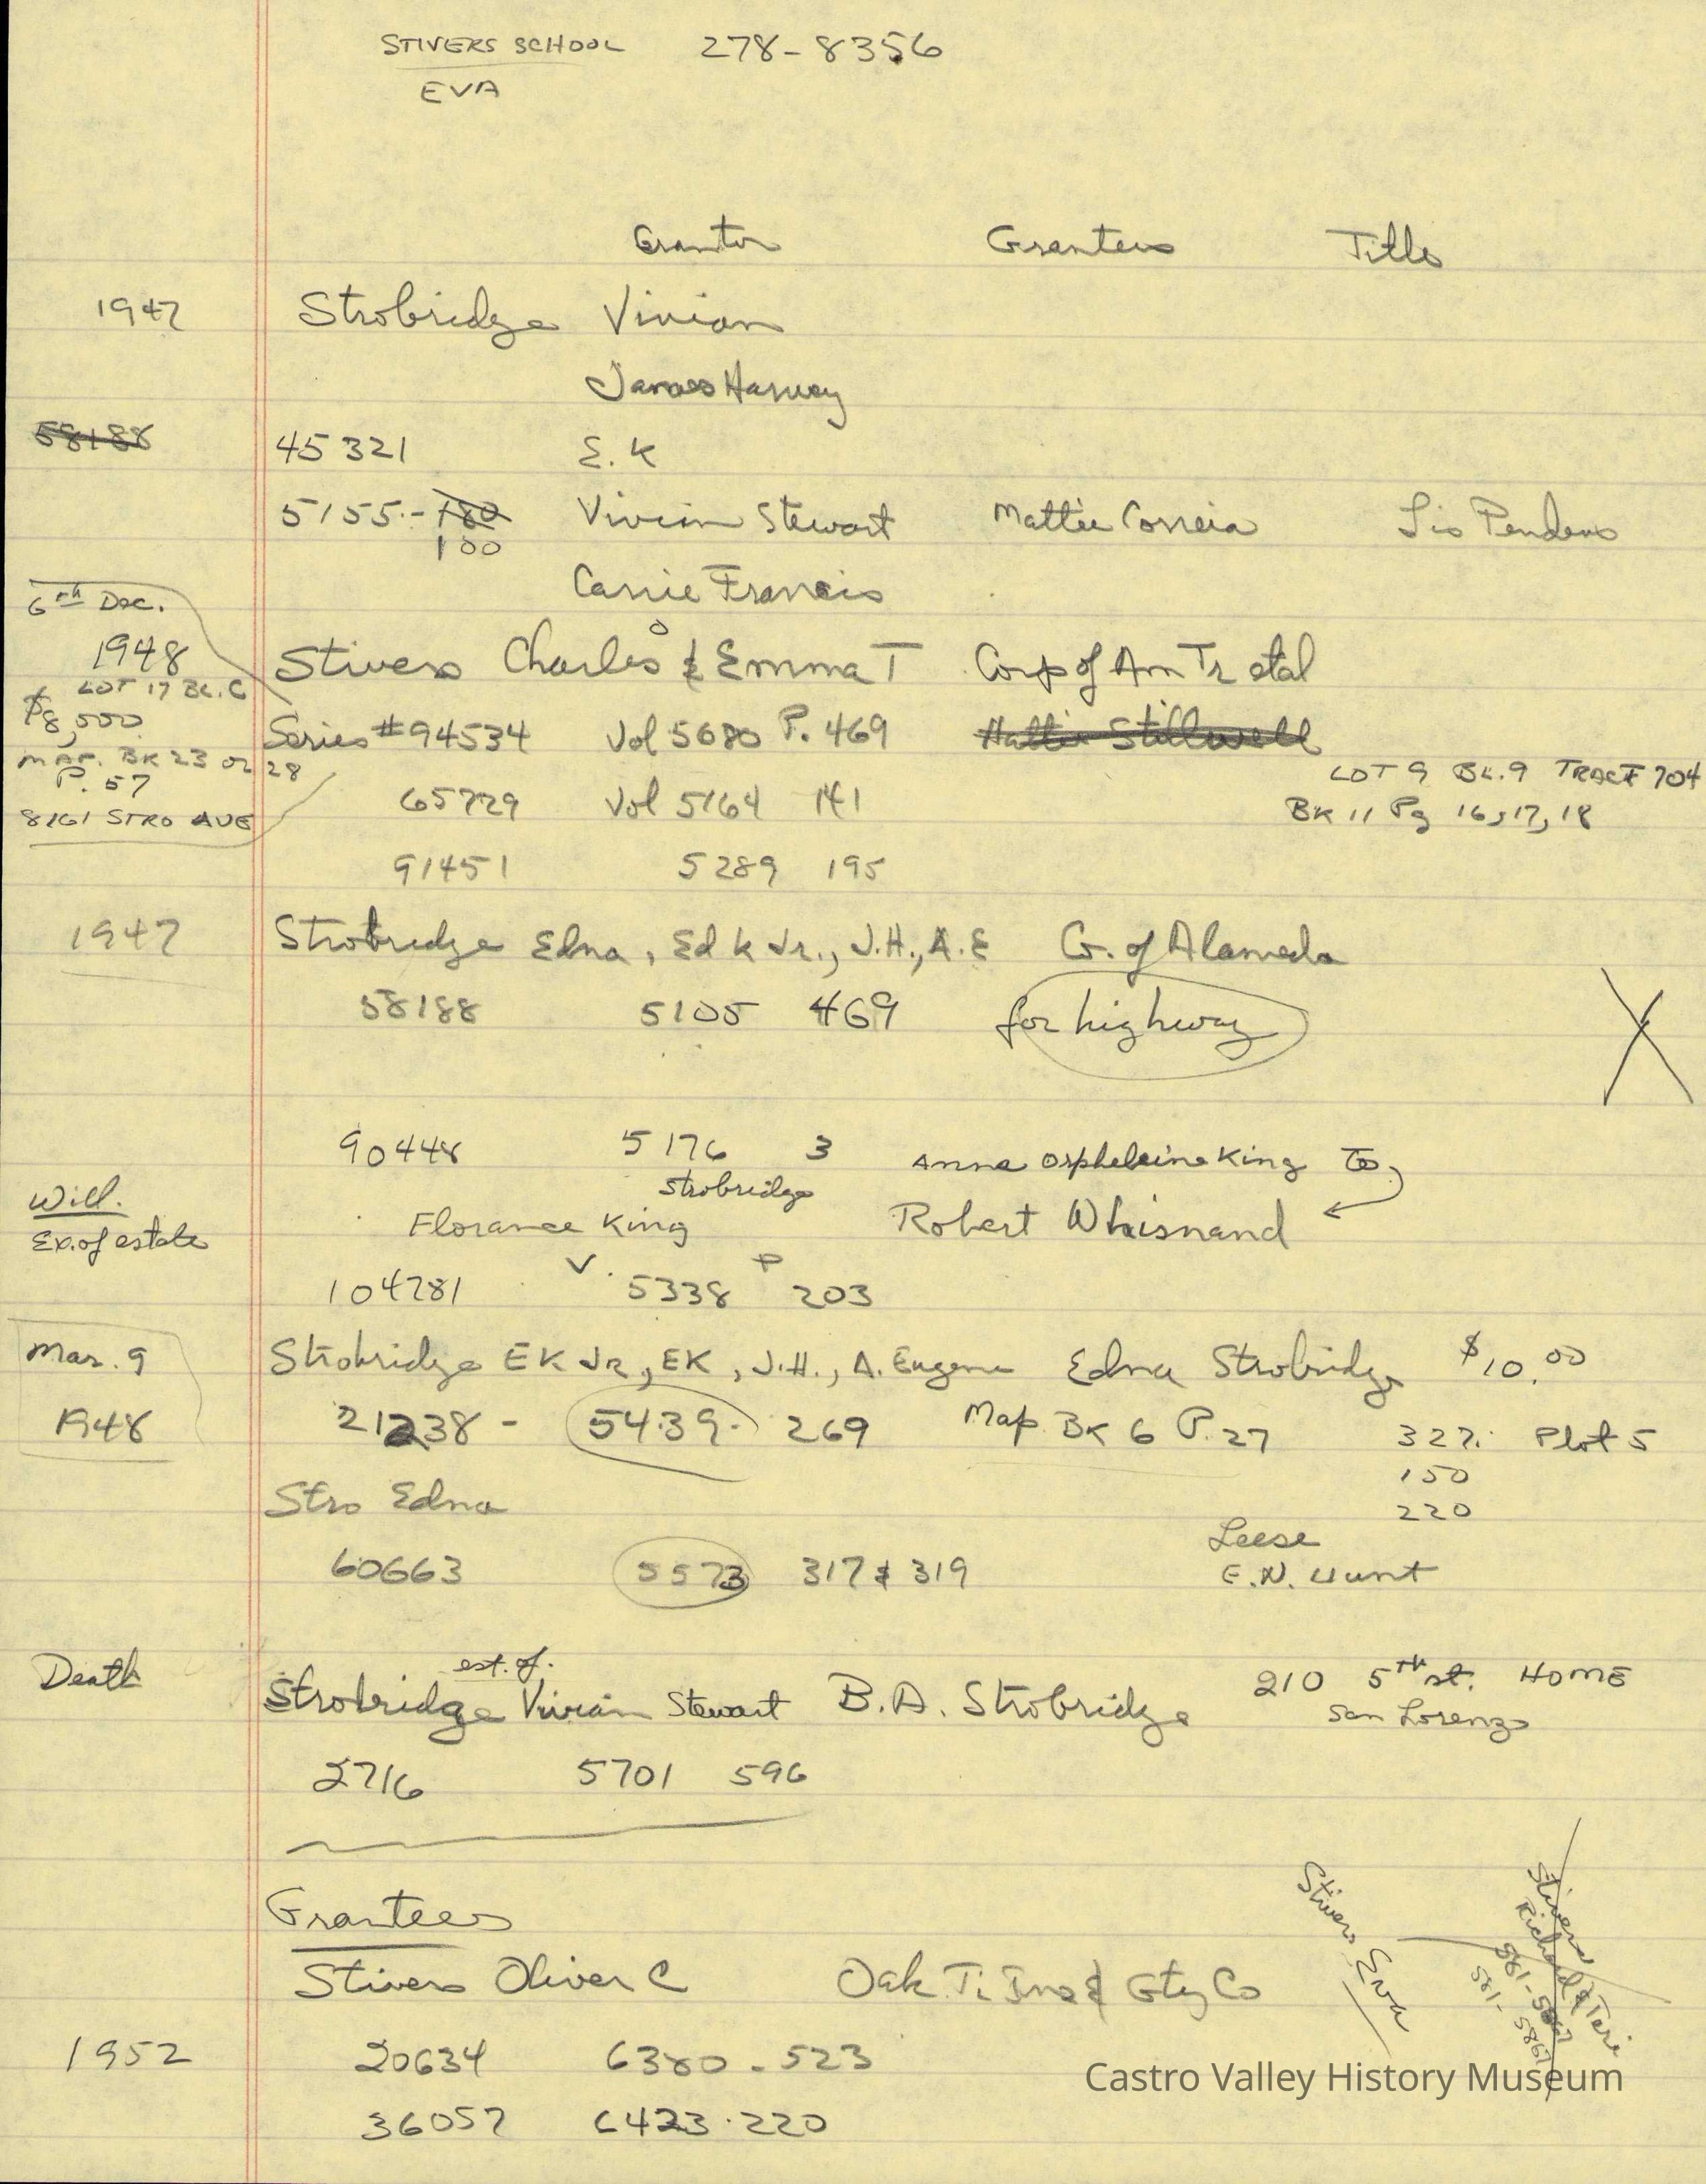 STIVERS SCHOOL 278-8356
EVA
Grantor Grantees Title
1947 Strobridge Vivian
James Harvey
58188 45321 E. K
5155-180 Vivian Stewart Mattie Correia Lis Pendens
100
Carrie Francis
6th Dec.
1948 Stivers Charles & Emma T Corp of Am Tr etal
LOT 17 BL. C
$8,000 Series #94534 Vol 5680 P. 469 Hattie Stillwell
MAP. BK 23 or 28
P. 57
LOT 9 BL. 9 TRACT 704
65729 Vol 5164 141 BK 11 Pg 16, 17, 18
8161 STRO AVE
91451 5289 195
1947 Strobridge Edna, Ed K Jr., J.H., A.E Co. of Alameda
58188 5105 469 for highway
90448 5176 3 Anna King to
Strobridge
Will. Florance King Robert Whisnand
Ex. of estate
V. P
104781 5338 203
Mar. 9 Strobridge EK Jr, EK, J.H., A. Eugene Edna Strobridge $10.00
1948 21238 - 5439- 269 Map BK 6 P. 27 327. Plot 5
150
Stro Edna 220
Leese
60663 5573 317 & 319 E.N. Hunt
Death est. of. 210 5th st. HOME
Strobridge Vivian Stewart B.A. Strobridge San Lorenzo
2716 5701 596
Grantees
Stivers Oliver C Oak Ti Ins & Gty Co
Stivers Eva
Stivers
Richard & Teri
581-5867
1952 20634 6380-523
36057 6423-220
Castro Valley History Museum